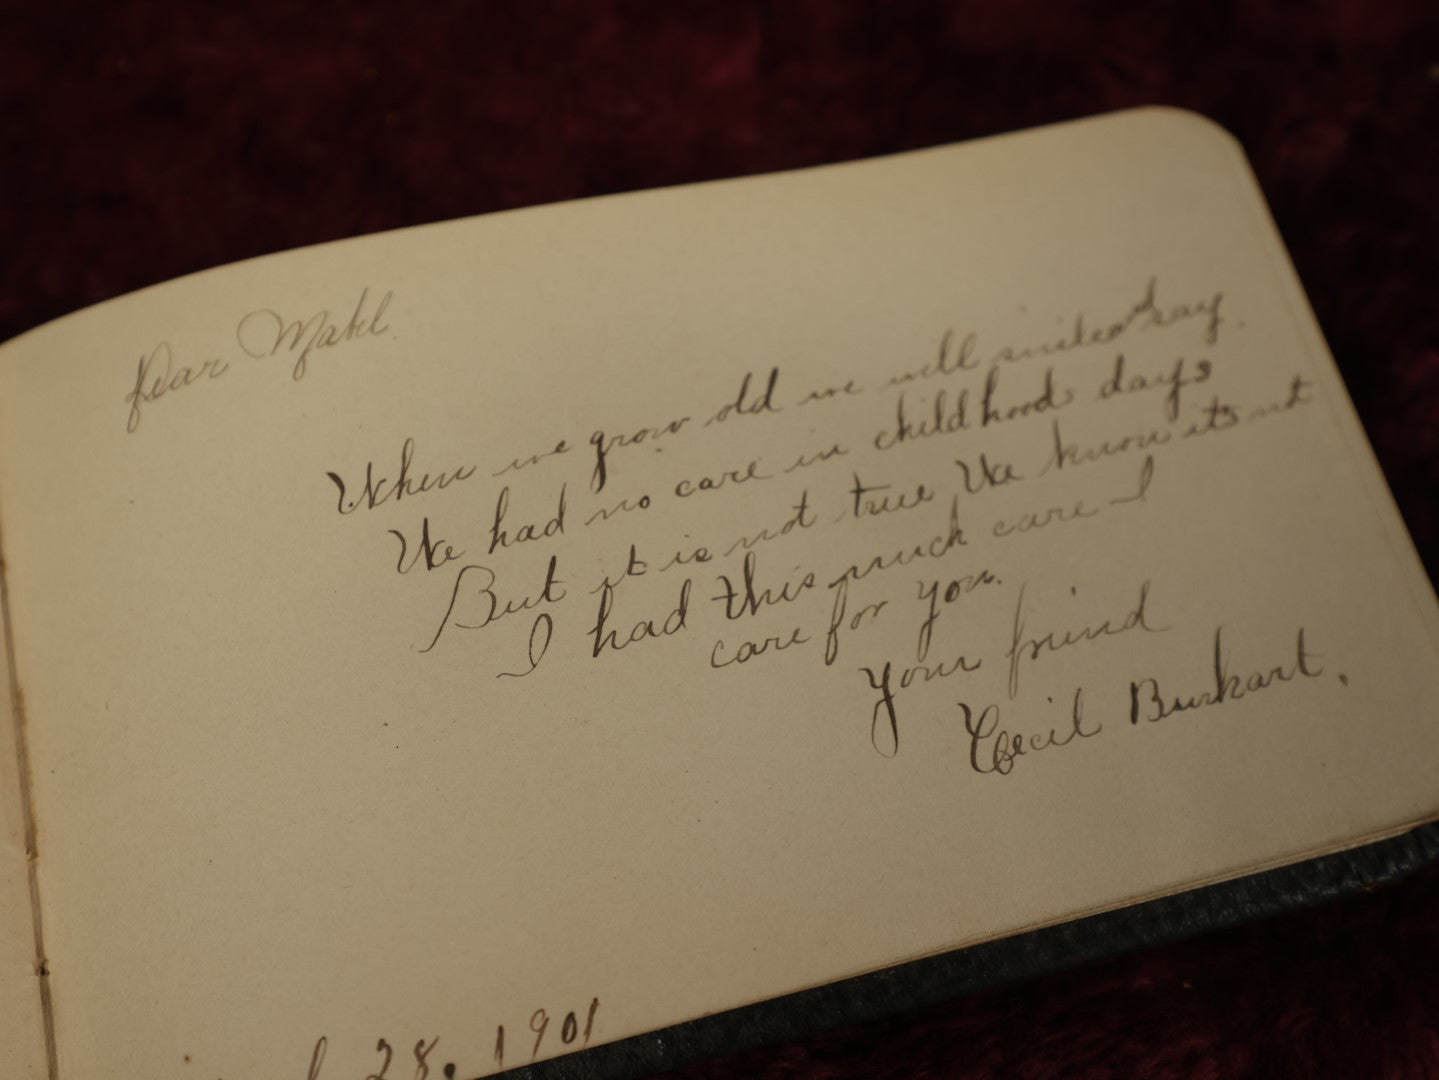 Dear Mabel.
When we grow old we will smile and say.
We had no care in childhoods days
But it is not true We know its not
I had this much care I
care for you.
Your friend
Cecil Burkart.
28. 1901